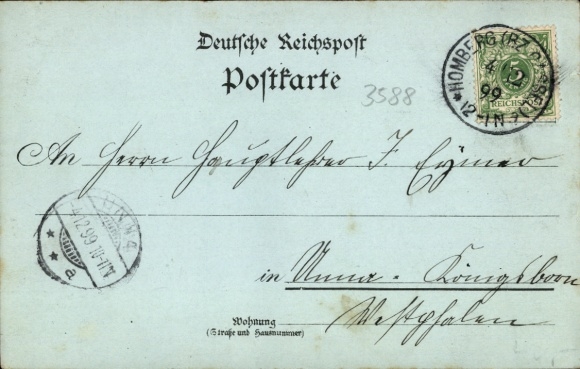 Deutsche Reichspost
Postkarte
3588
HOMBERG (BZ.
4 12
99
12-1N
5
REICHSPOST
An Herrn Hauptlehrer J. Eymer
UNNA
4.12.99.10-11N.
* * a
in Unna-Königsborn
Westphalen
Wohnung
(Straße und Hausnummer)